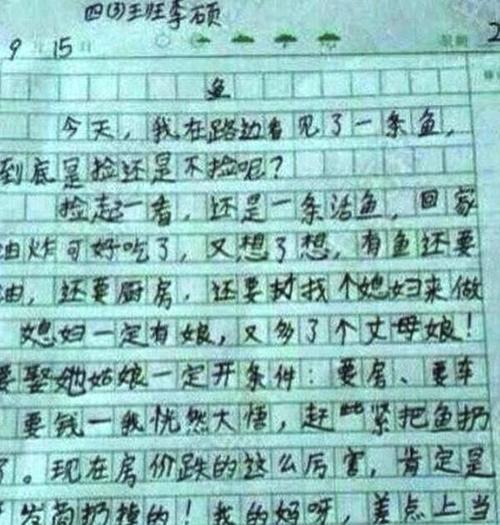 四(3)王旺李硕
9年15日
鱼
今天，我在路边看见了一条鱼，
到底是捡还是不捡呢？
捡起一看，还是一条活鱼，回家
油炸可好吃了，又想了想，有鱼还要
油，还要厨房，还要找个媳妇来做
媳妇一定有娘，又多了个丈母娘！
要娶她姑娘一定开条件：要房、要车
要钱一我恍然大悟，赶紧把鱼扔
了。现在房价跌的这么厉害，肯定是
发商扔掉的！我的妈呀，差点上当